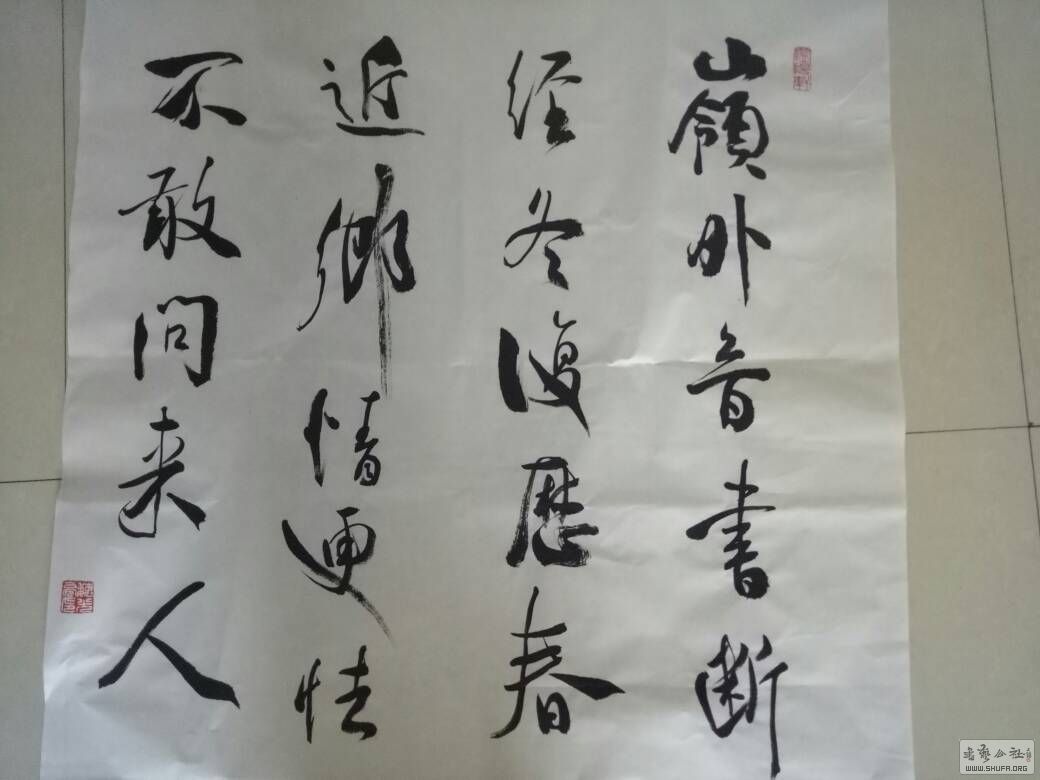 嶺外音書断
经冬復歷春
近鄉情更怯
不敢问来人
书艺公社
WWW.SHUFA.ORG